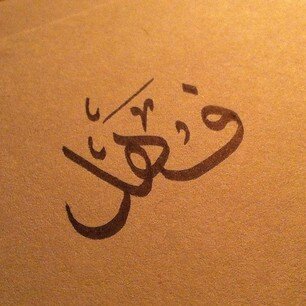 فهل